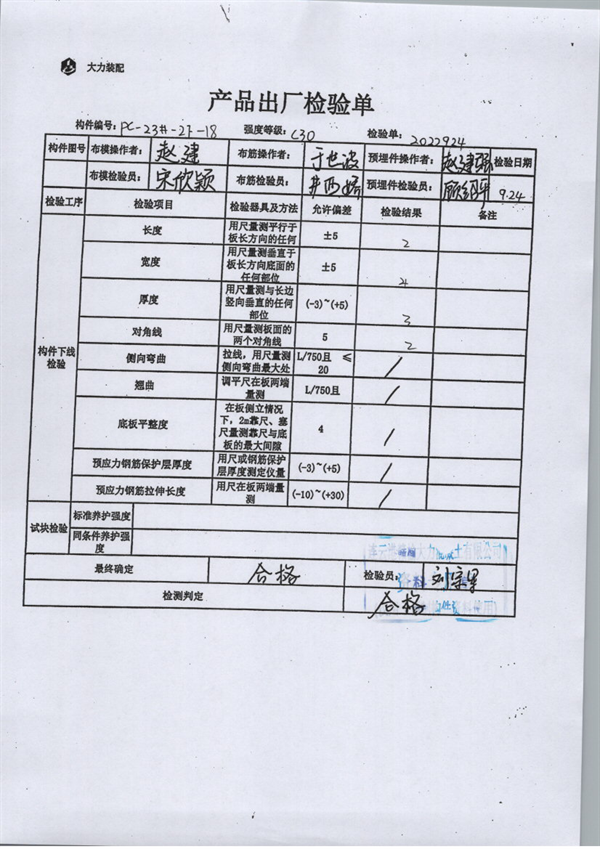 大力装配
产品出厂检验单
构件编号: PC-23#-2F-18 强度等级: C30 检验单: 2022924
构件图号 布模操作者: 赵建 布筋操作者: 于世波 预埋件操作者: 赵建强 检验日期
布模检验员: 宋欣颖 布筋检验员: 预埋件检验员: 9.24
检验工序 检验项目 检验器具及方法 允许偏差 检验结果 备注
构件下线检验
长度 用尺量测平行于板长方向的任何 ±5 2
宽度 用尺量测垂直于板长方向底面的任何部位 ±5 4
厚度 用尺量测与长边竖向垂直的任何部位 (-3)~(+5) 3
对角线 用尺量测板面的两个对角线 5 2
侧向弯曲 拉线，用尺量测侧向弯曲最大处 L/750且 ≤20 /
翘曲 调平尺在板两端量测 L/750且 /
底板平整度 在板侧立情况下，2m靠尺、塞尺量测靠尺与底板的最大间隙 4 /
预应力钢筋保护层厚度 用尺或钢筋保护层厚度测定仪量 (-3)~(+5) /
预应力钢筋拉伸长度 用尺在板两端量测 (-10)~(+30) /
试块检验 标准养护强度
同条件养护强度
最终确定 合格 检验员:
检测判定 合格